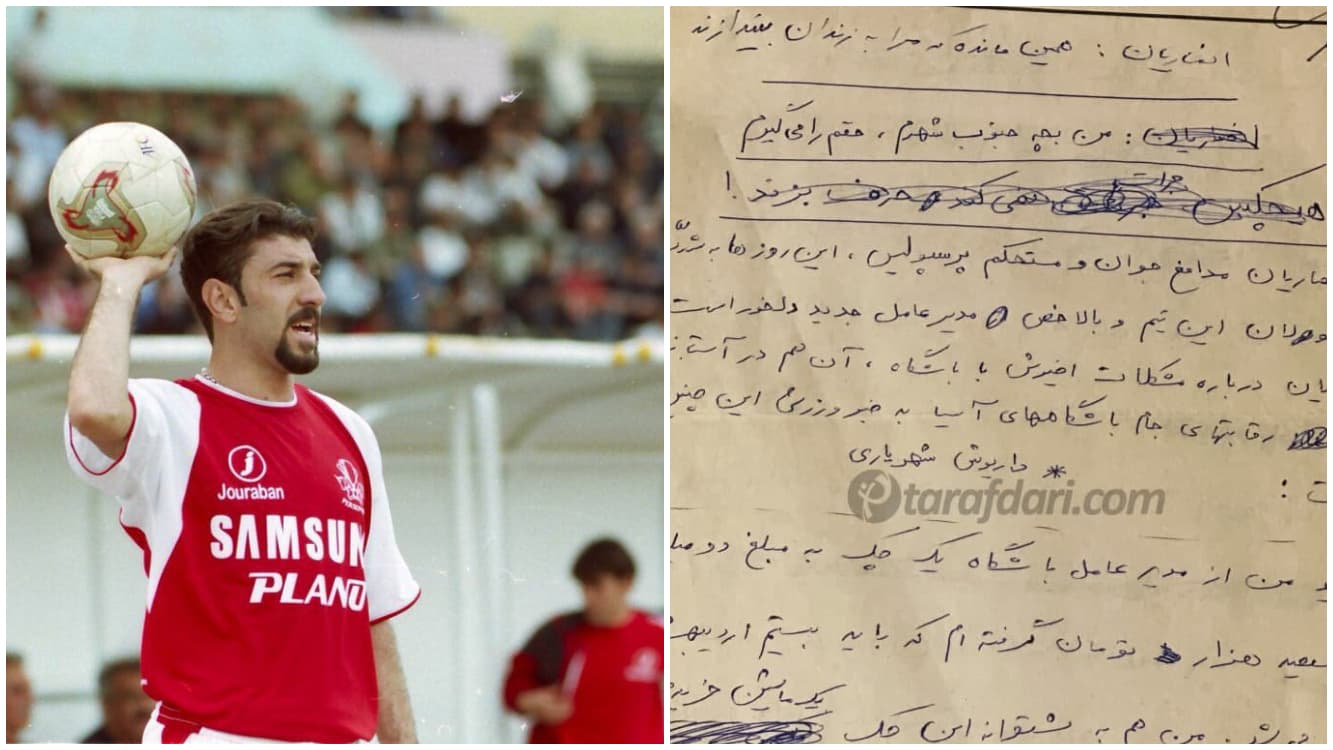 Jouraban
SAMSUN
PLANO
انصاریان : همین مانده که مرا به زندان بیندازند
انصاریان : من بچه جنوب شهرم ، حقم را می‌گیرم
هیچکس جرات نمی کند حرف بزند !
ماریان مدافع جوان و مستحکم پرسپولیس ، این روزها به شدّ
این تیم و بالاخص مدیرعامل جدید دلخور است
یان درباره مشکلات اخیرش با باشگاه ، آن هم در آستانه
رقابتهای جام باشگاههای آسیا به خبر ورزشی این چنین
* داریوش شهریاری
ت :
من از مدیر عامل باشگاه یک چک به مبلغ دو میل
هزار تومان گرفته ام که باید بیستم اردیبهـ
من هم به پشتوانه این چک یک ماشین خرید
tarafdari.com